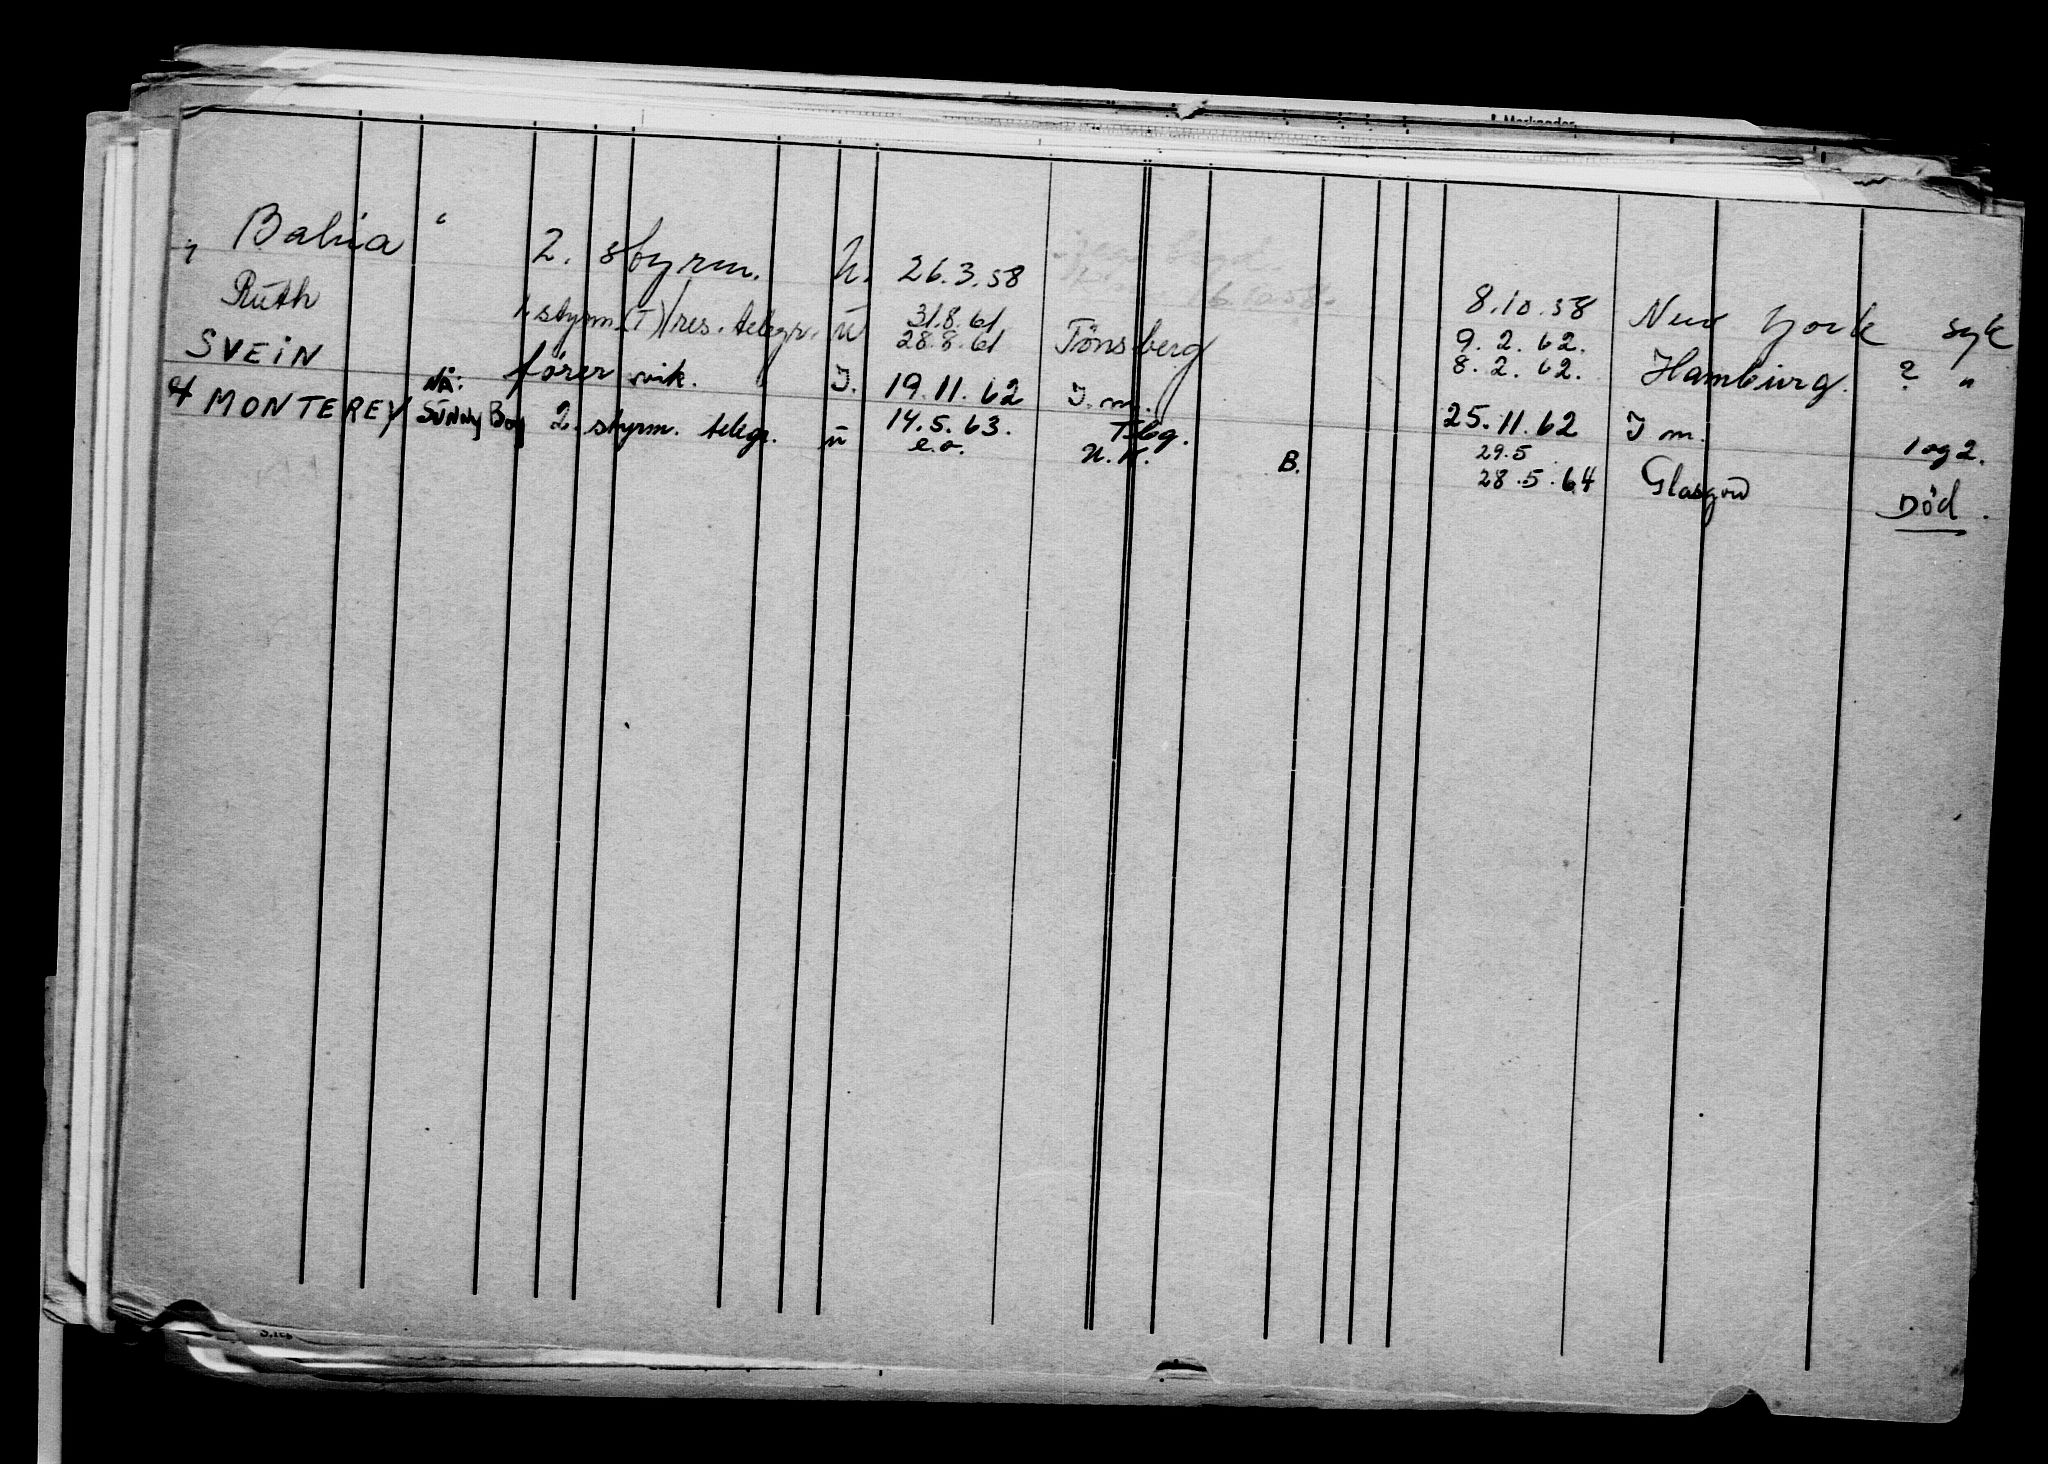 Bahia " 2. styrm. U. 26.3.58 8.10.58 New York syk
Ruth 1. styrm (T)/res. telegr. u 31.8.61 28.8.61 Tönsberg 9.2.62. 8.2.62. Hamburg. ? "
SVEIN förer vik. I. 19.11.62 I.m. 25.11.62 I m. 1 og 2.
4 MONTEREY NÅ: SUNNY Boy 2. styrm. telegr. u 14.5.63. e.o. Tbg. U.K. B. 29.5 28.5.64 Glasgow Död.